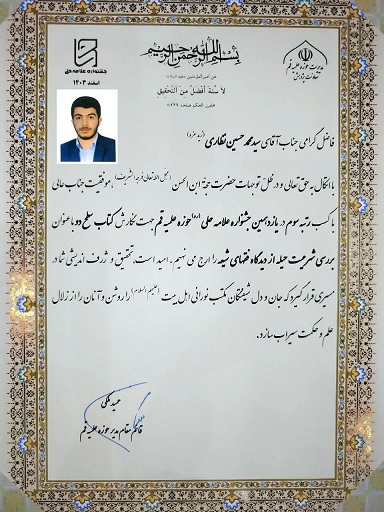 بسم الله الرحمن الرحیم
جشنواره علامه حلی
اسفند ۱۴۰۳
مدیریت حوزه علمیه قم
معاونت پژوهش
عن امیرالمؤمنین علیه السلام
لا سُنَّةَ أفضَلُ مِنَ التَّحقیقِ
فاضل گرامی جناب آقای سید محمد حسین نظاری (زید عزه)
با اتکال به حق تعالی و در ظل توجهات حضرت حجة ابن الحسن (عجل الله تعالی فرجه الشریف)، موفقیت جناب عالی
با کسب رتبه سوم در یازدهمین جشنواره علامه حلی (ره) حوزه علمیه قم جهت نگارش کتاب سطح دو با عنوان
بررسی مشروعیت حیله از دیدگاه فقهای شیعه را ارج می نهیم. امید است، تحقیق و ژرف اندیشی شما در
مسیری قرار گیرد که جان و دل شیفتگان مکتب نورانی اهل بیت (علیهم السلام) را روشن و آنان را از زلال
علم و حکمت سیراب سازد.
حمید ملکی
قائم مقام مدیر حوزه علمیه قم